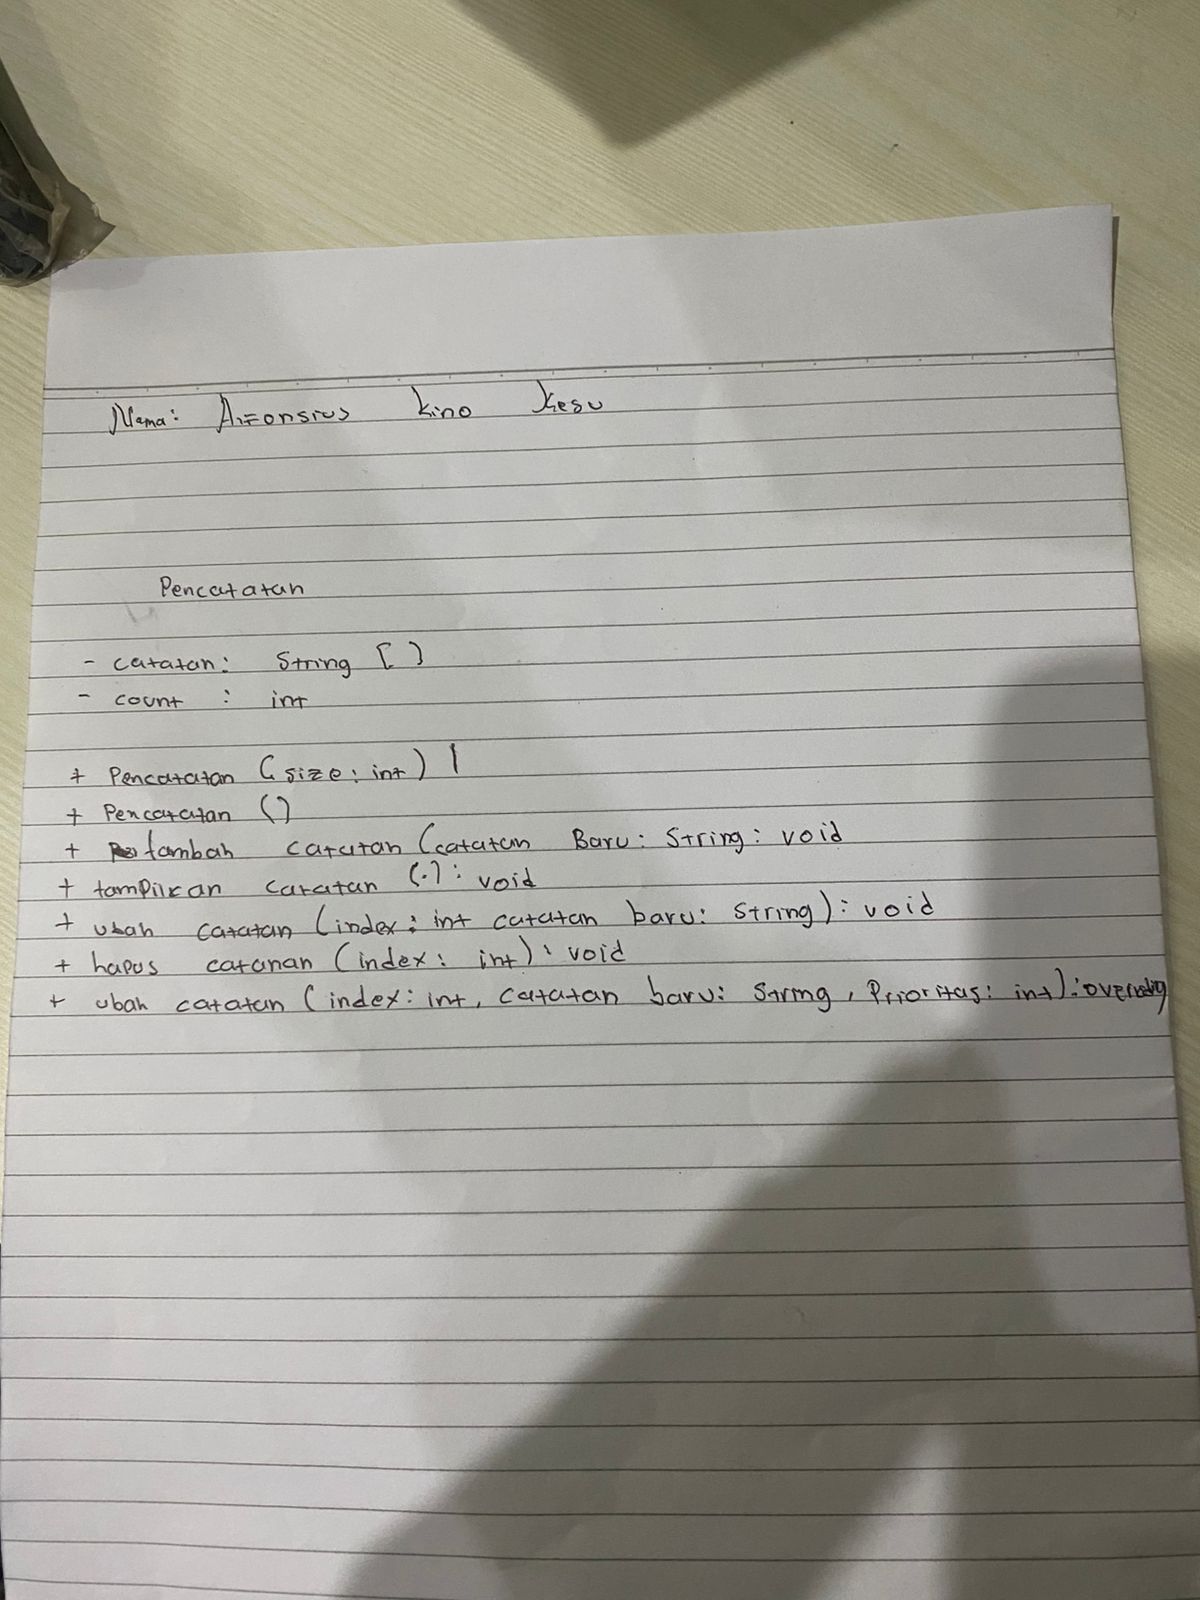 Nama: Alfonsius Kino Kesu
Pencatatan
- catatan: String []
- count : int
+ Pencatatan (size: int) |
+ Pencatatan ()
+ tambah catatan (catatan Baru: String: void
+ tampilkan catatan (.): void
+ ubah catatan (index: int catatan baru: String): void
+ hapus catanan (index: int): void
+ ubah catatan (index: int, catatan baru: String, Prioritas: int):